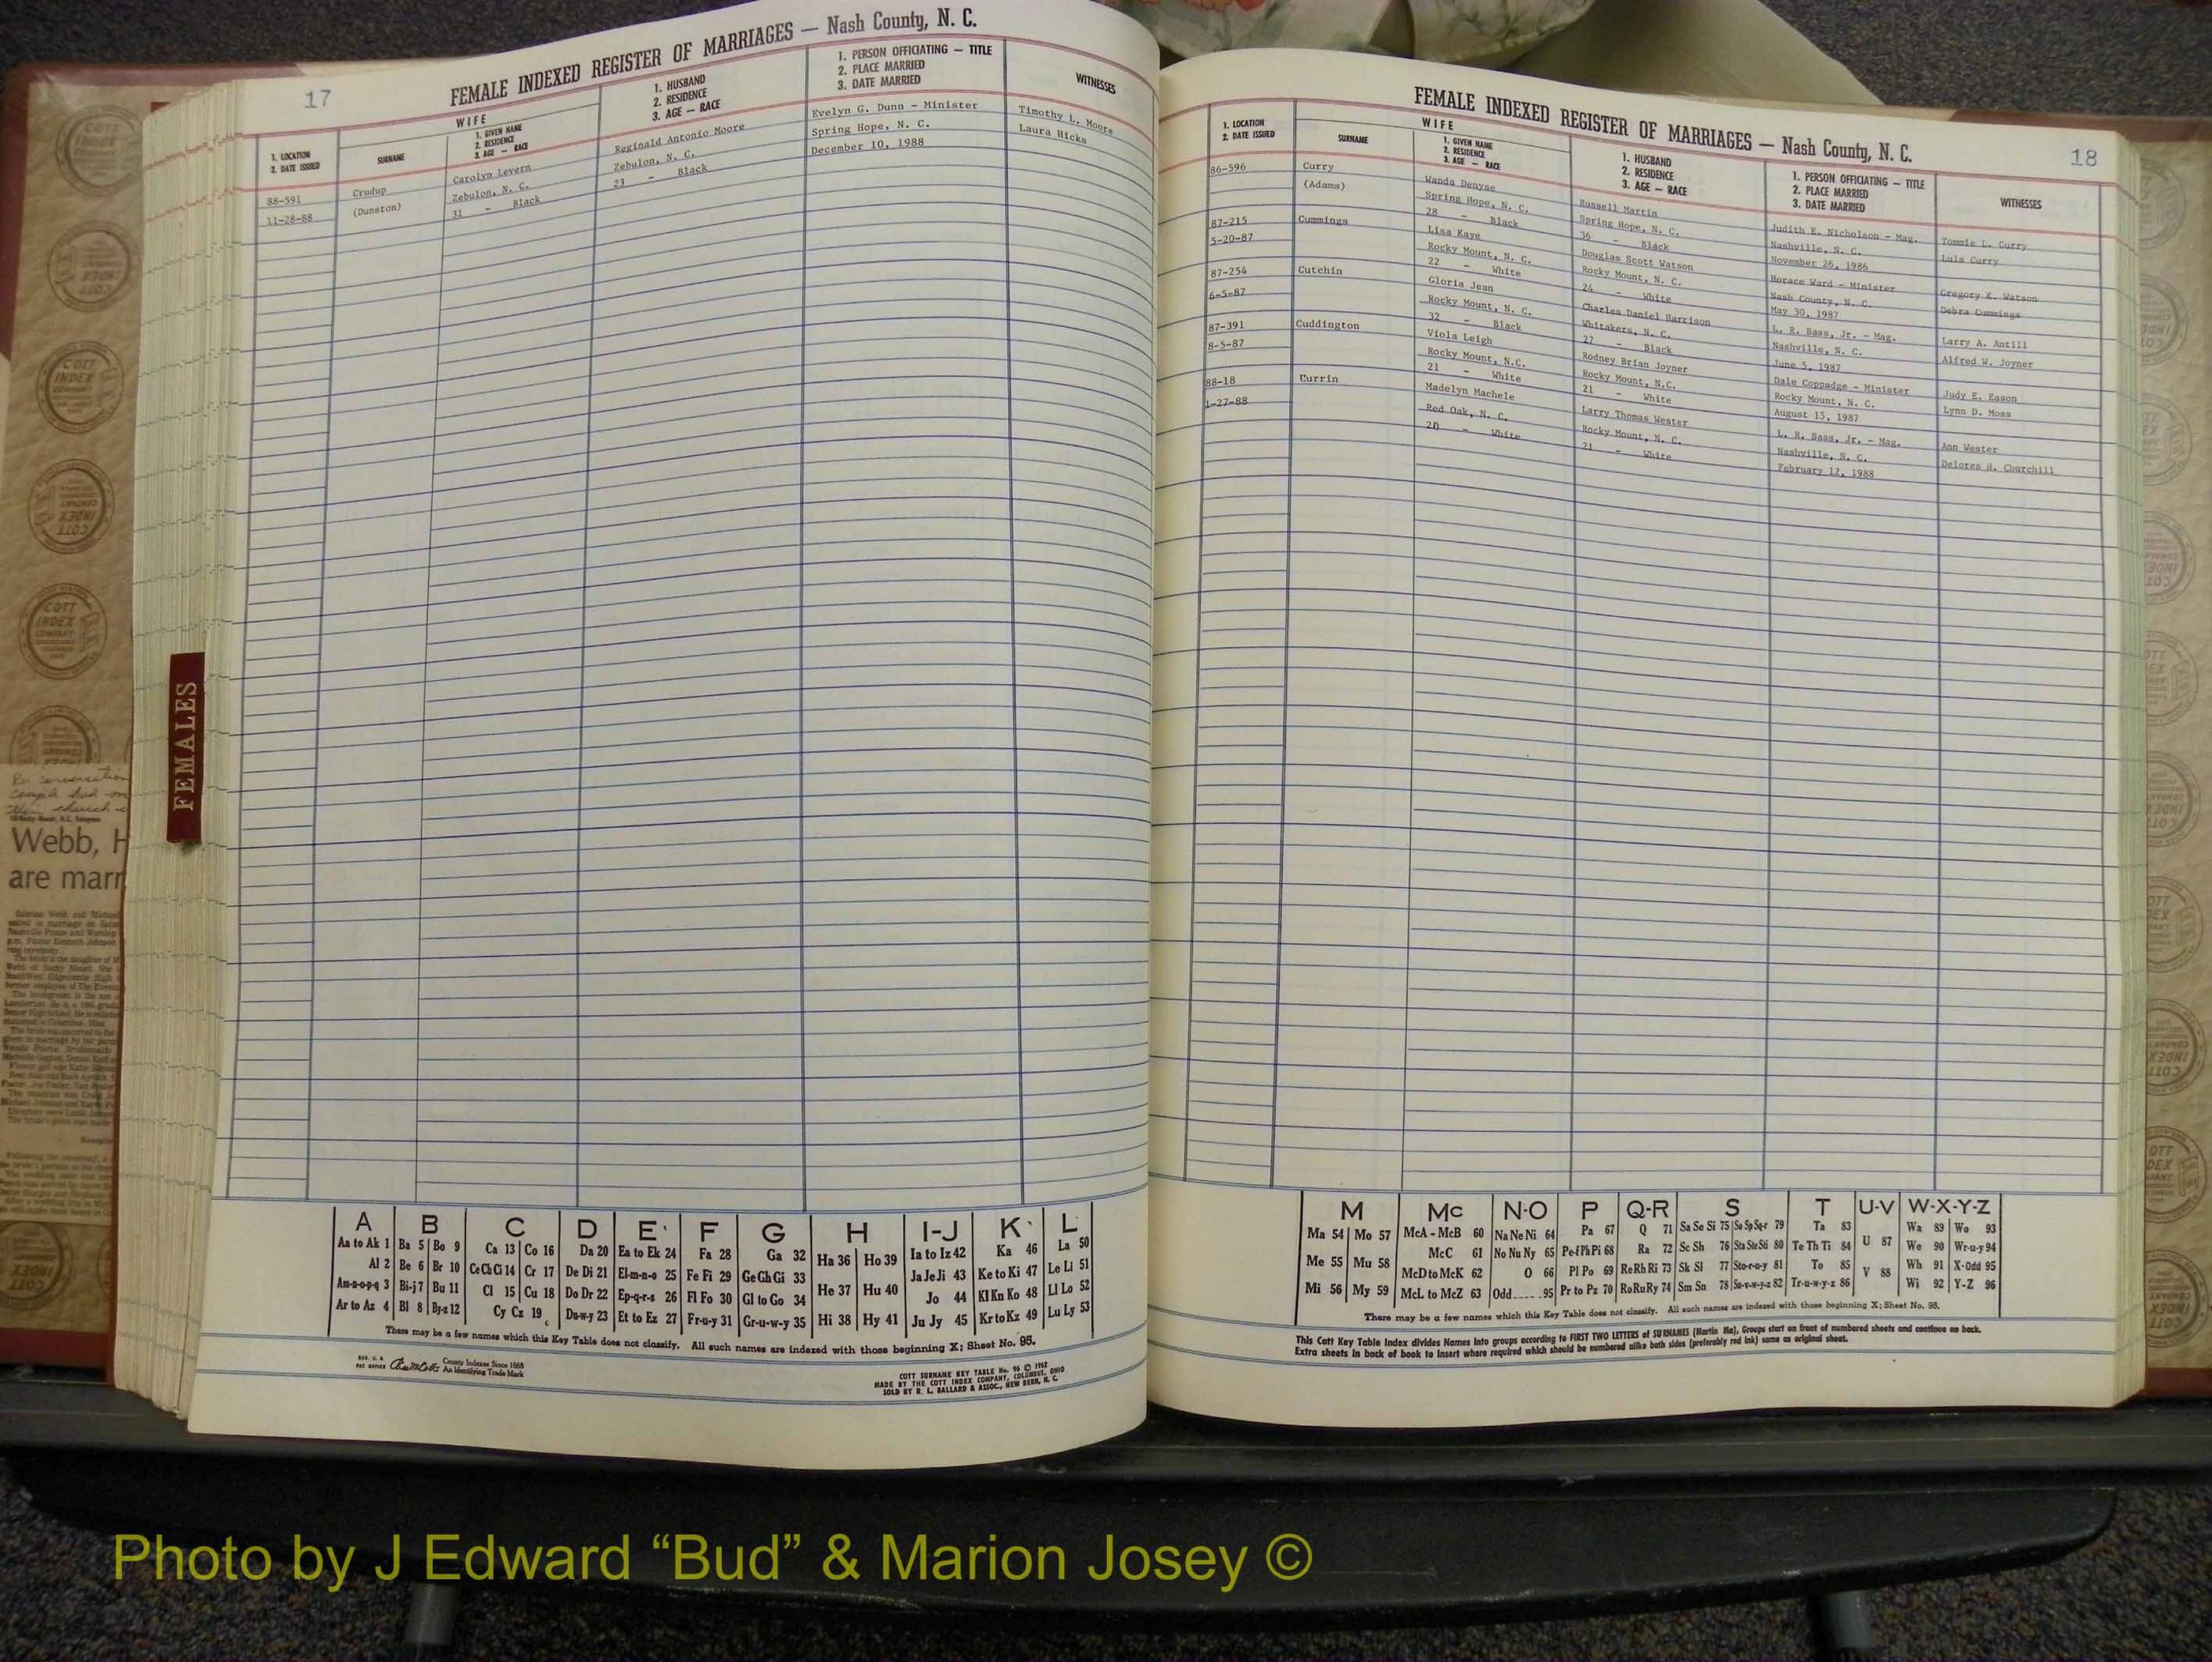 17
FEMALE INDEXED REGISTER OF MARRIAGES — Nash County, N. C.
1. LOCATION
2. DATE ISSUED
WIFE
SURNAME
1. GIVEN NAME
2. RESIDENCE
3. AGE — RACE
1. HUSBAND
2. RESIDENCE
3. AGE — RACE
1. PERSON OFFICIATING — TITLE
2. PLACE MARRIED
3. DATE MARRIED
WITNESSES
88-591 Crudup Carolyn Levern Reginald Antonio Moore Evelyn G. Dunn - Minister Timothy L. Moore
11-28-88 (Dunston) Zebulon, N. C. Zebulon, N. C. Spring Hope, N. C. Laura Hicks
31 - Black 23 - Black December 10, 1988
FEMALES
Webb, H
are marr
A B C D E F G H I-J K L
Aa to Ak 1 Ba 5 Bo 9 Ca 13 Co 16 Da 20 Ea to Ek 24 Fa 28 Ga 32 Ha 36 Ho 39 Ia to Iz 42 Ka 46 La 50
Al 2 Be 6 Br 10 Ce Ch Ci 14 Cr 17 De Di 21 El-m-n-o 25 Fe Fi 29 Ge Gh Gi 33 Ja Je Ji 43 Ke to Ki 47 Le Li 51
Am-n-o-p-q 3 Bi-j 7 Bu 11 Cl 15 Cu 18 Do Dr 22 Ep-q-r-s 26 Fl Fo 30 Gl to Go 34 He 37 Hu 40 Jo 44 Kl Kn Ko 48 Ll Lo 52
Ar to Az 4 Bl 8 By-z 12 Cy Cz 19 Du-w-y 23 Et to Ez 27 Fr-u-y 31 Gr-u-w-y 35 Hi 38 Hy 41 Ju Jy 45 Kr to Kz 49 Lu Ly 53
There may be a few names which this Key Table does not classify. All such names are indexed with those beginning X; Sheet No. 95.
REG. U. S.
PAT OFFICE
County Indexes Since 1888
An Identifying Trade Mark
COTT SURNAME KEY TABLE No. 96 © 1962
MADE BY THE COTT INDEX COMPANY, COLUMBUS, OHIO
SOLD BY R. L. BALLARD & ASSOC., NEW BERN, N. C.
FEMALE INDEXED REGISTER OF MARRIAGES — Nash County, N. C.
18
1. LOCATION
2. DATE ISSUED
WIFE
SURNAME
1. GIVEN NAME
2. RESIDENCE
3. AGE — RACE
1. HUSBAND
2. RESIDENCE
3. AGE — RACE
1. PERSON OFFICIATING — TITLE
2. PLACE MARRIED
3. DATE MARRIED
WITNESSES
86-596 Curry Wanda Denyse Russell Martin Judith E. Nicholson - Mag. Tommie L. Curry
(Adams) Spring Hope, N. C. Spring Hope, N. C. Nashville, N. C. Lula Curry
28 - Black 36 - Black November 26, 1986
87-215 Cummings Lisa Kaye Douglas Scott Watson Horace Ward - Minister Gregory K. Watson
5-20-87 Rocky Mount, N. C. Rocky Mount, N. C. Nash County, N. C. Debra Cummings
22 - White 24 - White May 30, 1987
87-254 Cutchin Gloria Jean Charles Daniel Harrison L. R. Bass, Jr. - Mag. Larry A. Antill
6-5-87 Rocky Mount, N. C. Whitakers, N. C. Nashville, N. C. Alfred W. Joyner
32 - Black 27 - Black June 5, 1987
87-391 Cuddington Viola Leigh Rodney Brian Joyner Dale Coppadge - Minister Judy E. Eason
8-5-87 Rocky Mount, N.C. Rocky Mount, N.C. Rocky Mount, N. C. Lynn D. Moss
21 - White 21 - White August 15, 1987
88-18 Currin Madelyn Machele Larry Thomas Wester L. R. Bass, Jr. - Mag. Ann Wester
1-27-88 Red Oak, N. C. Rocky Mount, N. C. Nashville, N. C. Delores H. Churchill
20 - White 21 - White February 12, 1988
M Mc N-O P Q-R S T U-V W-X-Y-Z
Ma 54 Mo 57 McA - McB 60 Na Ne Ni 64 Pa 67 Q 71 Sa Se Si 75 So Sp Sq-r 79 Ta 83 U 87 Wa 89 Wo 93
Me 55 Mu 58 McC 61 No Nu Ny 65 Pe-f Ph Pi 68 Ra 72 Sc Sh 76 Sta Ste Sti 80 Te Th Ti 84 We 90 Wr-u-y 94
McD to McK 62 O 66 Pl Po 69 Re Rh Ri 73 Sk Sl 77 Sto-r-u-y 81 To 85 V 88 Wh 91 X-Odd 95
Mi 56 My 59 McL to McZ 63 Odd.....95 Pr to Pz 70 Ro Ru Ry 74 Sm Sn 78 Su-v-w-y-z 82 Tr-u-w-y-z 86 Wi 92 Y-Z 96
There may be a few names which this Key Table does not classify. All such names are indexed with those beginning X; Sheet No. 95.
This Cott Key Table Index divides Names into groups according to FIRST TWO LETTERS of SURNAMES (Martin Ma), Groups start on front of numbered sheets and continue on back.
Extra sheets in back of book to insert where required which should be numbered alike both sides (preferably red ink) same as original sheet.
Photo by J Edward “Bud” & Marion Josey ©